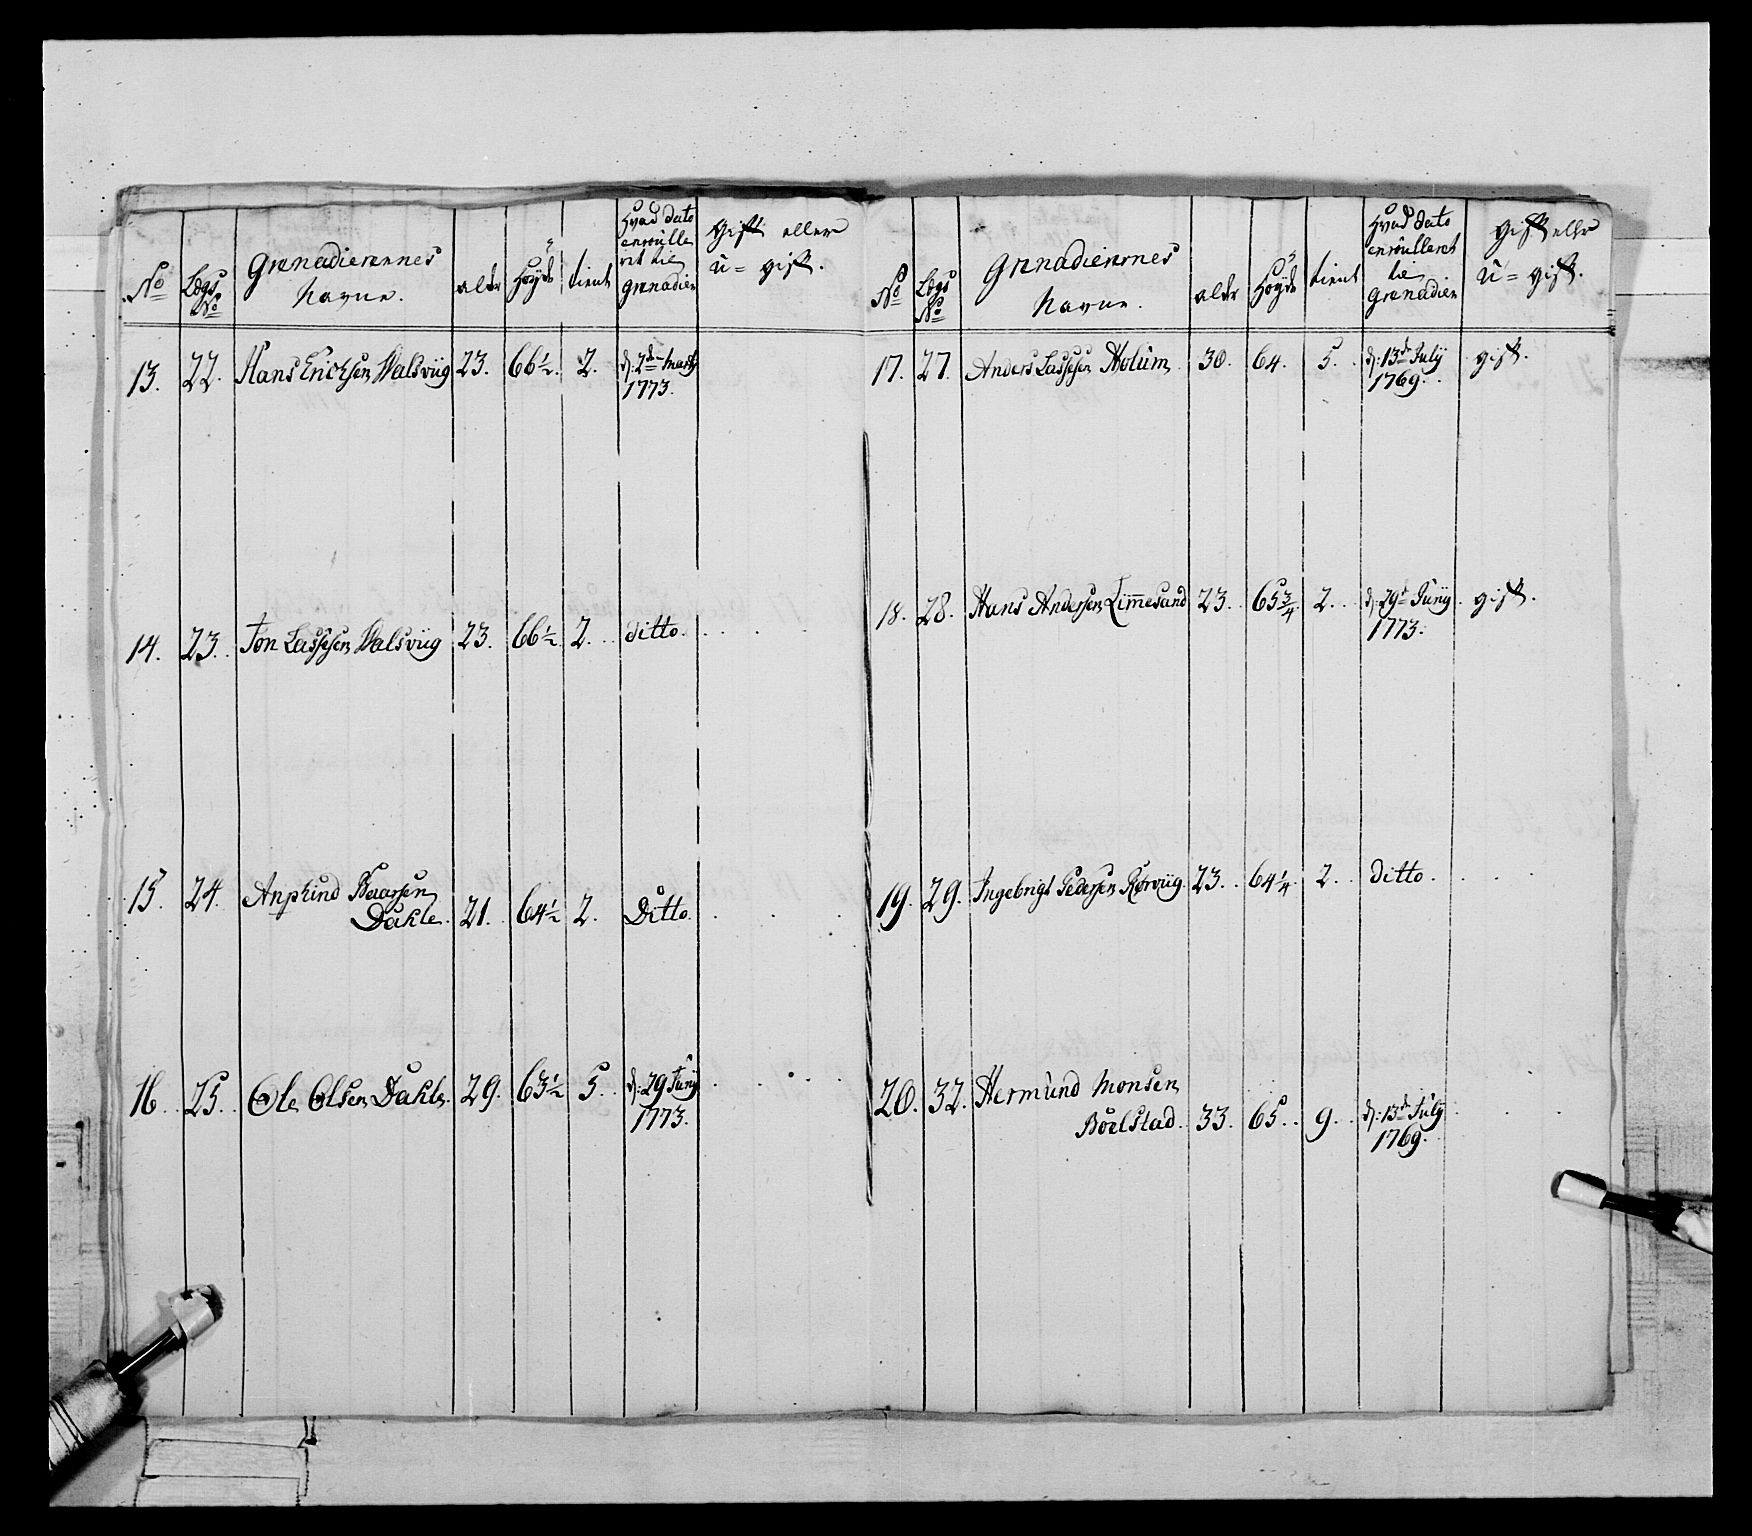 No
Lægs No
Grenadierernes Navne.
alder
høyde
tient
Hvad dato enroulleret til Grenadier
gift eller u=gift.
13. 22. Hans Erichsen Walsviig 23. 66½. 2. d: 2de Marty 1773.
14. 23. Jon Lassesen Walsviig 23. 66½ 2. ditto.
15. 24 Anphind Baarsen
Dahle. 21. 64½ 2. Ditto.
16. 25. Ole Olsen Dahle. 29. 63½ 5. d: 29 Juny
1773.
No
Lægs No
Grenadierernes Navne.
alder
høyde
tient
Hvad dato enroulleret til Grenadier
gift eller u=gift.
17. 27. Anders Lassesen Holum 30. 64. 5. d: 13de July gift.
1769.
18. 28. Hans Andersen Limesand 23. 65¾ 2. d: 29de Juny gift.
1773.
19. 29. Ingebrigt Pedersen Rørviig 23. 64¼ 2. ditto.
20. 32. Hermund Monsen
Boelstad. 33. 65. 9. d: 13de July
1769.